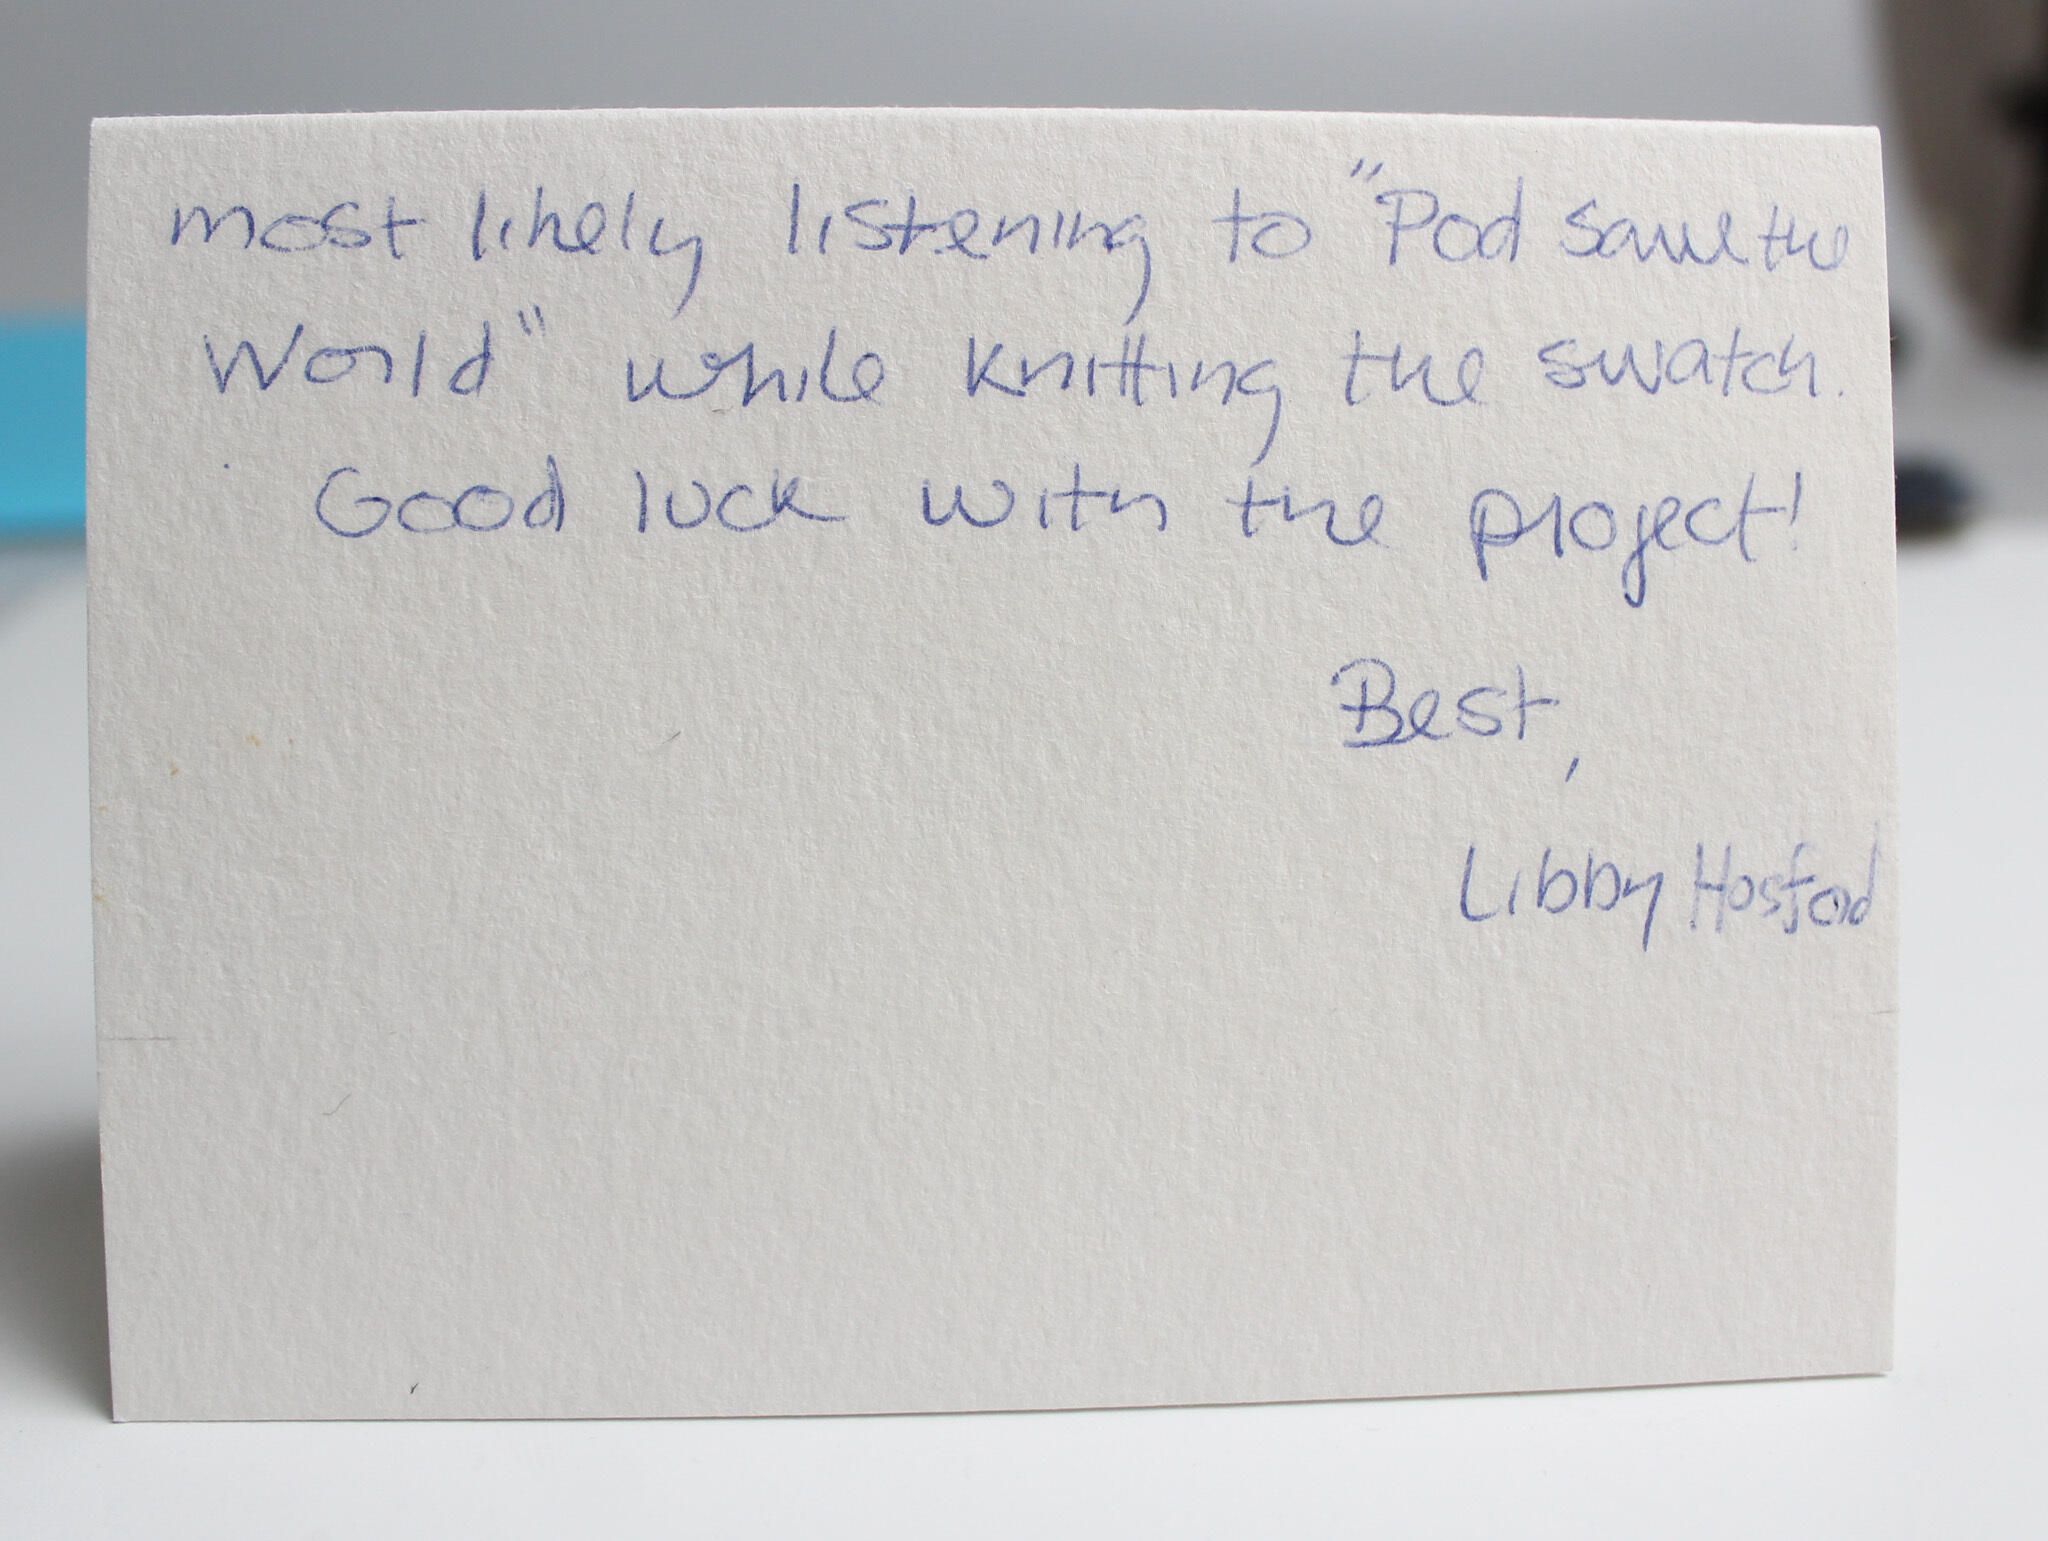 most likely listening to "Pod save the
World" while knitting the swatch.
Good luck with the project!
Best,
Libby Hosford